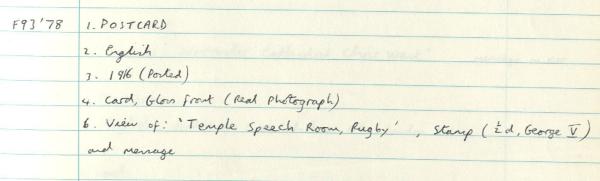 F93'78 1. POSTCARD
2. English
3. 1916 (Posted)
4. Card, Gloss front (Real Photograph)
6. View of: 'Temple Speech Room, Rugby', Stamp (½d, George V)
and message